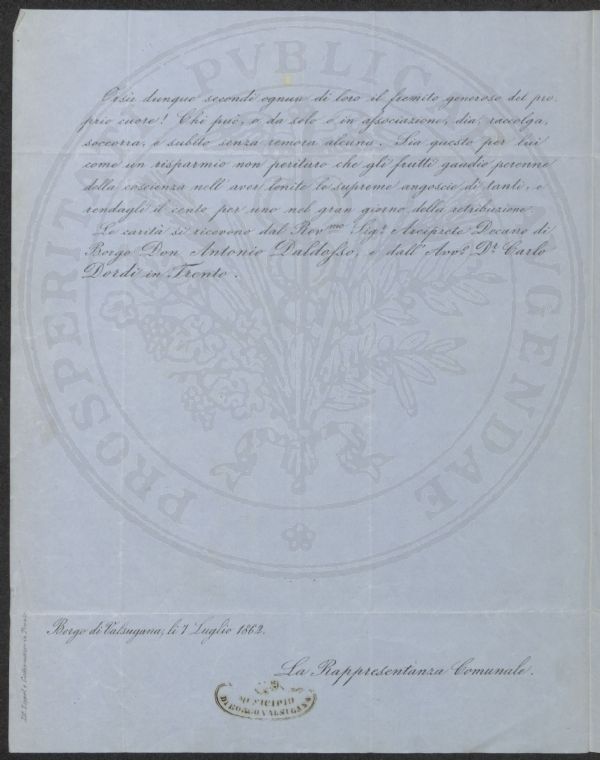 Orsù dunque secondi ognun di loro il fremito generoso del pro,
prio cuore! Chi può, o da solo o in associazione, dia, raccolga,
soccorra, e subito senza remora alcuna. Sia questo per lui
come un risparmio non perituro che gli frutti gaudio perenne
della coscienza nell'aver lenite le supreme angoscie di tanti, e
rendagli il cento per uno nel gran giorno della retribuzione.
Le carità si ricevono dal Rev.mo Sig.r Arciprete Decano di
Borgo Don Antonio Daldosso, e dall'Avv.o D.r Carlo
Dordi in Trento.
Borgo di Valsugana, li 7 Luglio 1862.
La Rappresentanza Comunale.
MUNICIPIO
DI BORGO VALSUGANA
PROSPERITATI PVBLICAE AUGENDAE